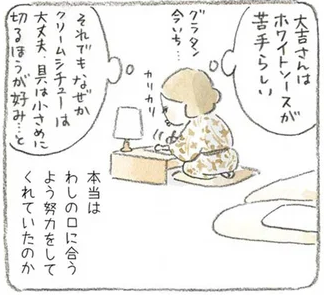 大吉さんは
ホワイトソースが
苦手らしい
グラタン
今いち…
カリカリ
それでもなぜか
クリームシチューは
大丈夫．具は小さめに
切るほうが好み…と
本当は
わしの口に合う
よう努力をして
くれていたのか